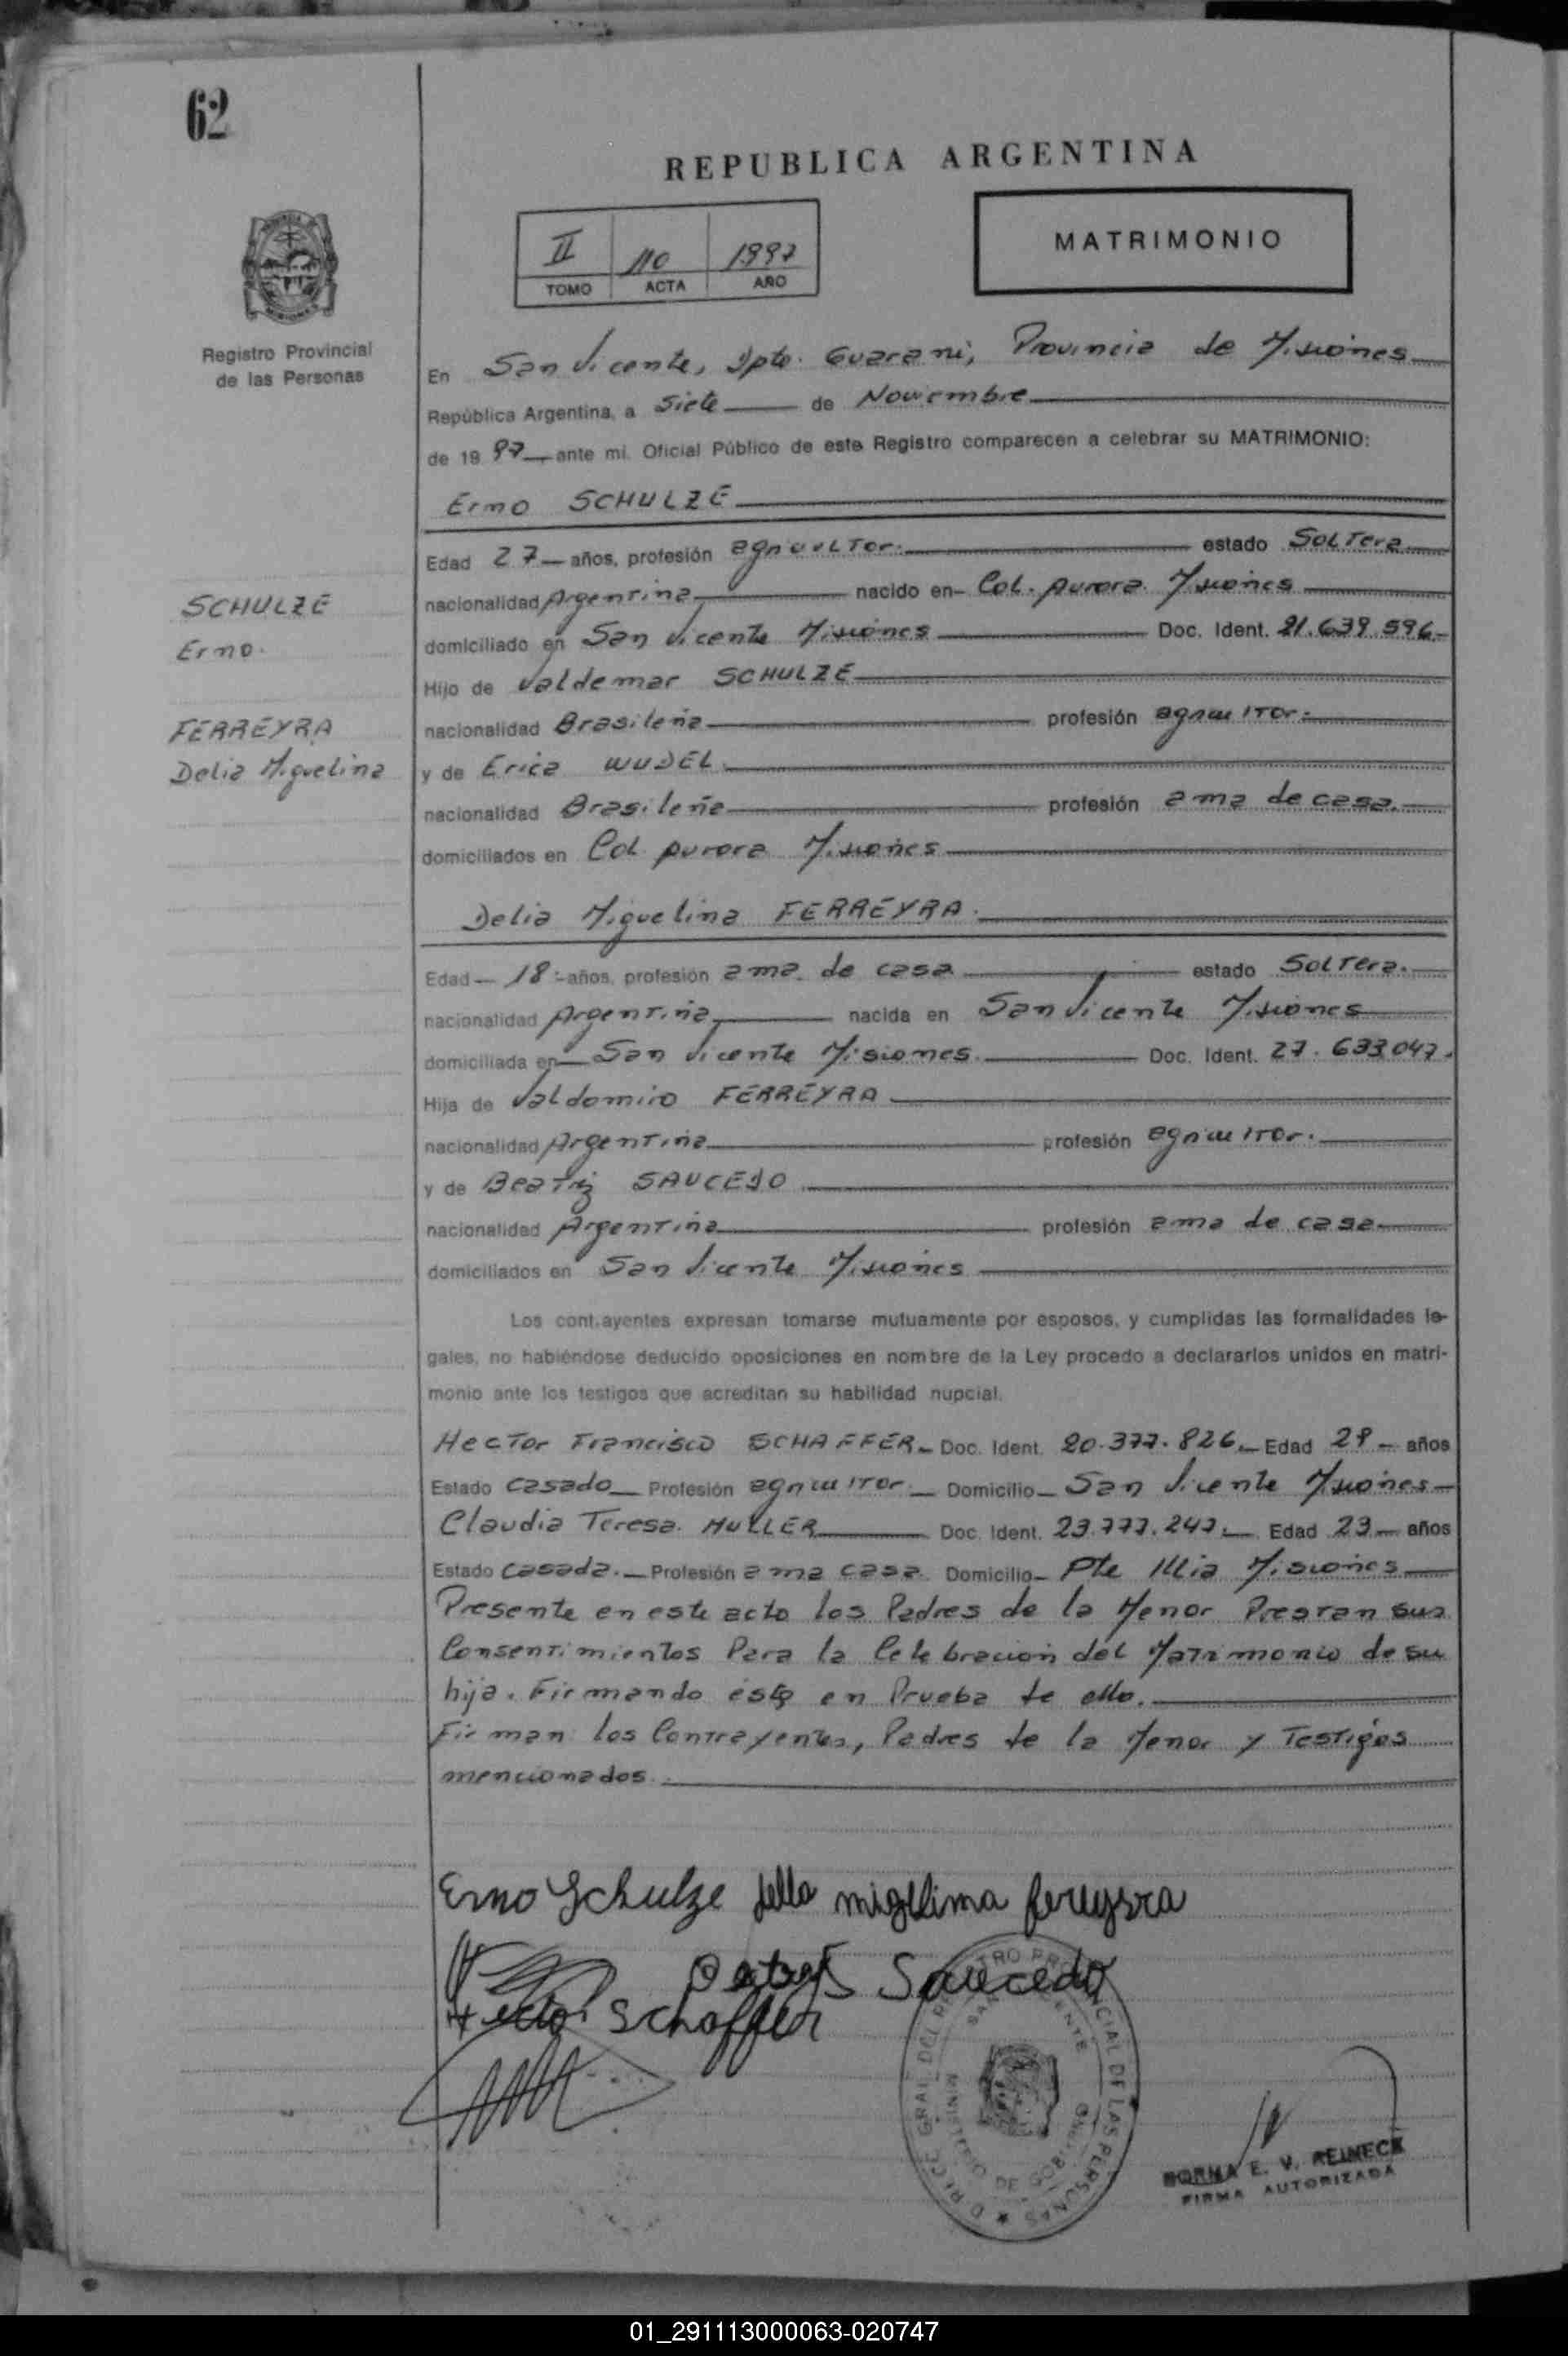 62
REPUBLICA ARGENTINA
II 110 1997
TOMO ACTA AÑO
MATRIMONIO
Registro Provincial
de las Personas
En San Vicente, Dpto. Guarani, Provincia de Misiones
República Argentina, a Siete de Noviembre
de 19 97 ante mi. Oficial Público de este Registro comparecen a celebrar su MATRIMONIO:
Erno SCHULZE
Edad 27 años, profesión agricultor. estado Soltera
nacionalidad Argentina nacido en Col. Aurora Misiones
domiciliado en San Vicente Misiones Doc. Ident. 21.639.596
Hijo de Valdemar SCHULZE
nacionalidad Brasileña profesión agricultor.
y de Erica WUDEL
nacionalidad Brasileña profesión ama de casa.
domiciliados en Col. Aurora Misiones
SCHULZE
Erno.
FERREYRA
Delia Miguelina
Delia Miguelina FERREYRA.
Edad 18 años, profesión ama de casa estado Soltera.
nacionalidad Argentina nacida en San Vicente Misiones
domiciliada en San Vicente Misiones. Doc. Ident. 27.633.047.
Hija de Valdomiro FERREYRA
nacionalidad Argentina profesión agricultor.
y de Beatriz SAUCEDO
nacionalidad Argentina profesión ama de casa
domiciliados en San Vicente Misiones
Los contrayentes expresan tomarse mutuamente por esposos, y cumplidas las formalidades le-
gales, no habiéndose deducido oposiciones en nombre de la Ley procedo a declararlos unidos en matri-
monio ante los testigos que acreditan su habilidad nupcial.
Hector Francisco SCHAFFER Doc. Ident. 20.377.826 Edad 29 años
Estado Casado Profesión agricultor Domicilio San Vicente Misiones
Claudia Teresa MULLER Doc. Ident. 23.777.247 Edad 23 años
Estado Casada. Profesión ama casa Domicilio Pte Illia Misiones
Presente en este acto los Padres de la Menor Prestan sus
Consentimientos Para la Celebracion del Matrimonio de su
hija. Firmando esto en Prueba de ello.
Firman los Contrayentes, Padres de la Menor y Testigos
mencionados.
Erno Schulze Della migelima fereysra
Saucedo
Hector Schaffer
DIREC. GRAL. DEL REGISTRO PROVINCIAL DE LAS PERSONAS
SAN VICENTE
MINISTERIO DE GOBIERNO
NORMA E. V. REINECK
FIRMA AUTORIZADA
01_291113000063-020747